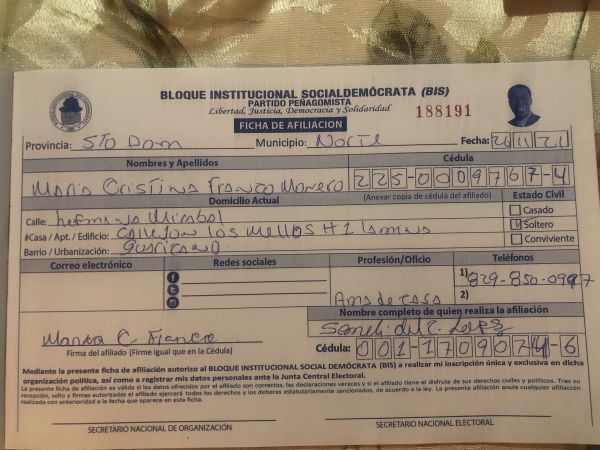 BLOQUE INSTITUCIONAL SOCIALDEMÓCRATA (BIS)
PARTIDO PEÑAGOMISTA
Libertad, Justicia, Democracia y Solidaridad
188191
FICHA DE AFILIACION
Provincia: STO Dom Municipio: Norte Fecha: 21
Nombres y Apellidos Cédula
Maria Cristina Franco 225-0009767-4
Domicilio Actual (Anexar copia de cédula del afiliado) Estado Civil
Calle: hermana Mirabal
Casado
#Casa / Apt. / Edificio: Callejon los Mellos #1
Soltero
Barrio / Urbanización: Guaricano
Conviviente
Correo electrónico Redes sociales Profesión/Oficio Teléfonos
1) 829-850-0997
2)
Ama de casa
Nombre completo de quien realiza la afiliación
Maria C. Franco
Firma del afiliado (Firme igual que en la Cédula)
Cédula: 001-1709074-6
Mediante la presente ficha de afiliación autorizo al BLOQUE INSTITUCIONAL SOCIAL DEMÓCRATA (BIS) a realizar mi inscripción única y exclusiva en dicha
organización política, así como a registrar mis datos personales ante la Junta Central Electoral.
La presente ficha de afiliación es válida si los datos ofrecidos por el afiliado son correctos, las declaraciones veraces y si el titular tiene el disfrute de sus derechos civiles y políticos. Tras su
recepción, sello y firmas autorizadas el afiliado ejercerá todos los derechos y los deberes estatutariamente sancionados, de acuerdo a la ley. La presente afiliación anula cualquier afiliación
realizada con anterioridad a la fecha que aparece en esta ficha.
SECRETARIO NACIONAL DE ORGANIZACIÓN SECRETARIO NACIONAL ELECTORAL